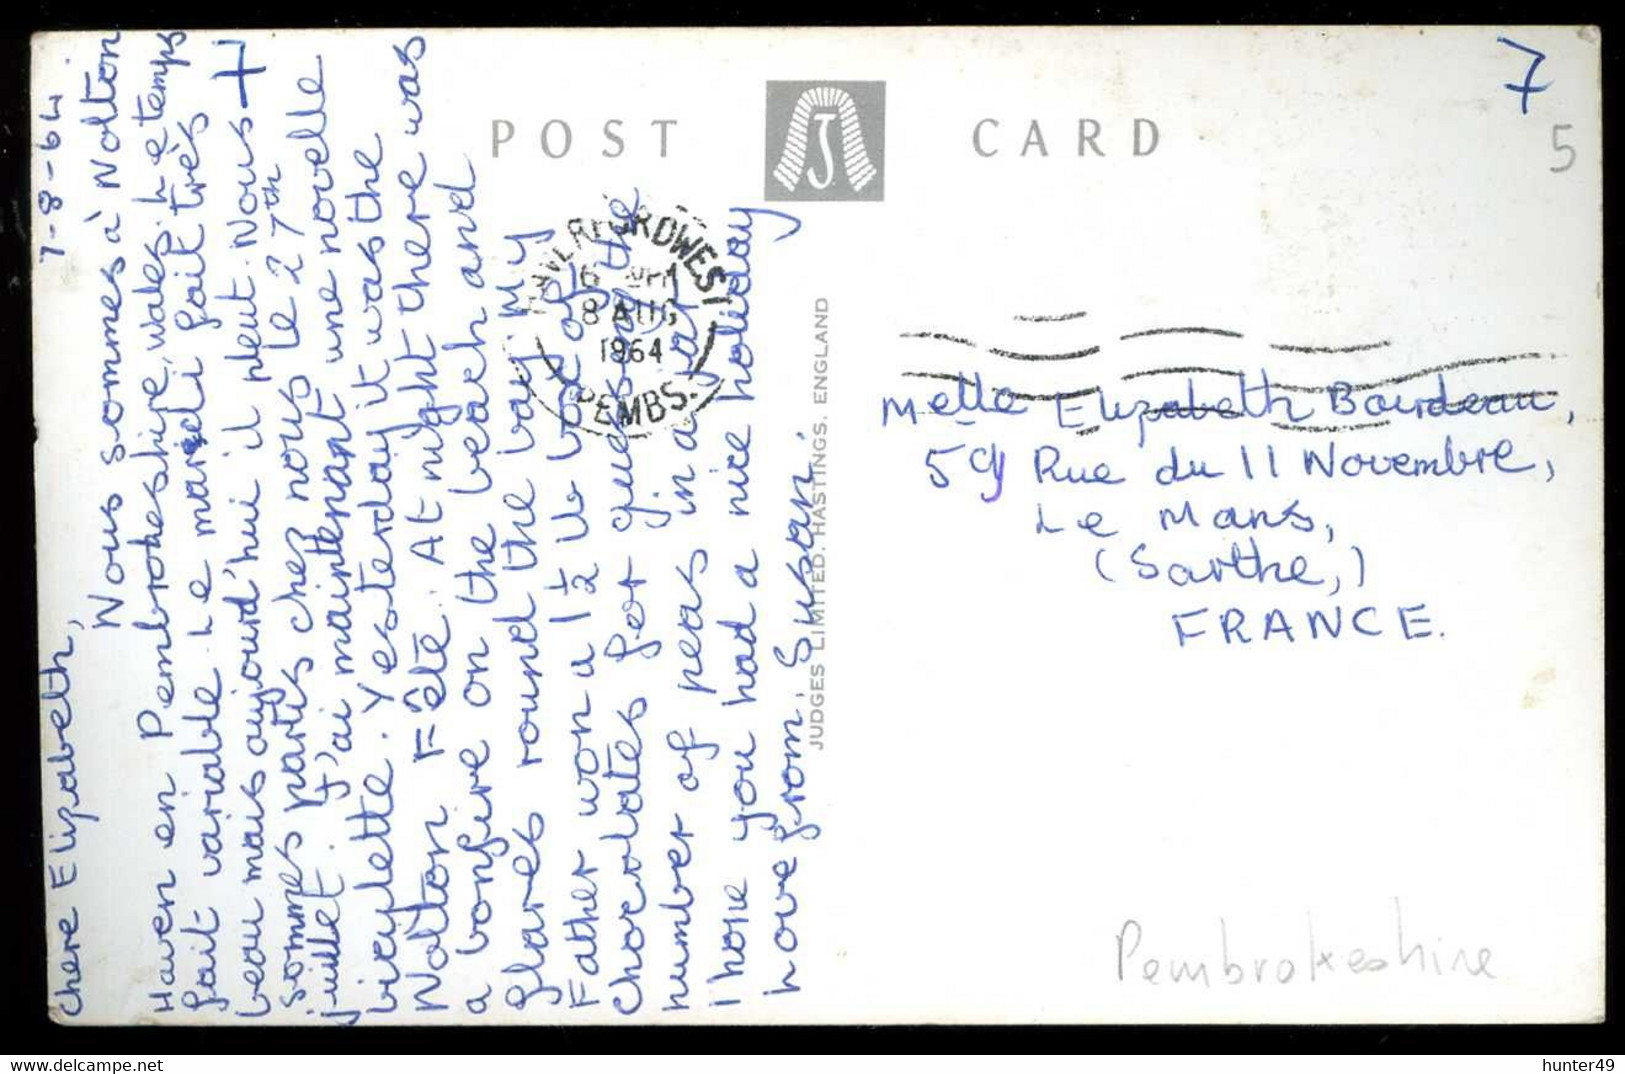 7-8-64
Chere Elizabeth,
Nous sommes à Nolton
Haven en Pembrokeshire, Wales. Le temps
fait variable. Le mardi fait très
beau mais aujourd'hui il pleut. Nous
sommes partis chez nous le 27th
juillet. J'ai maintenant une novelle
bicylette. Yesterday it was the
Nolton Fête. At night there was
a bonfire on the beach and
flares round the bay. My
Father won a 1½ lb box of
chocolates for guessing the
number of peas in a jar
I hope you had a nice holiday
Love from, Susan.
POST CARD
J
HAVERFORDWEST
8 AUG
1964
PEMBS.
JUDGES LIMITED, HASTINGS, ENGLAND
7
5
Melle Elizabeth Bourdeau,
59 Rue du 11 Novembre,
Le Mans,
(Sarthe,)
FRANCE.
Pembrokeshire
https://www.delcampe.net
hunter49